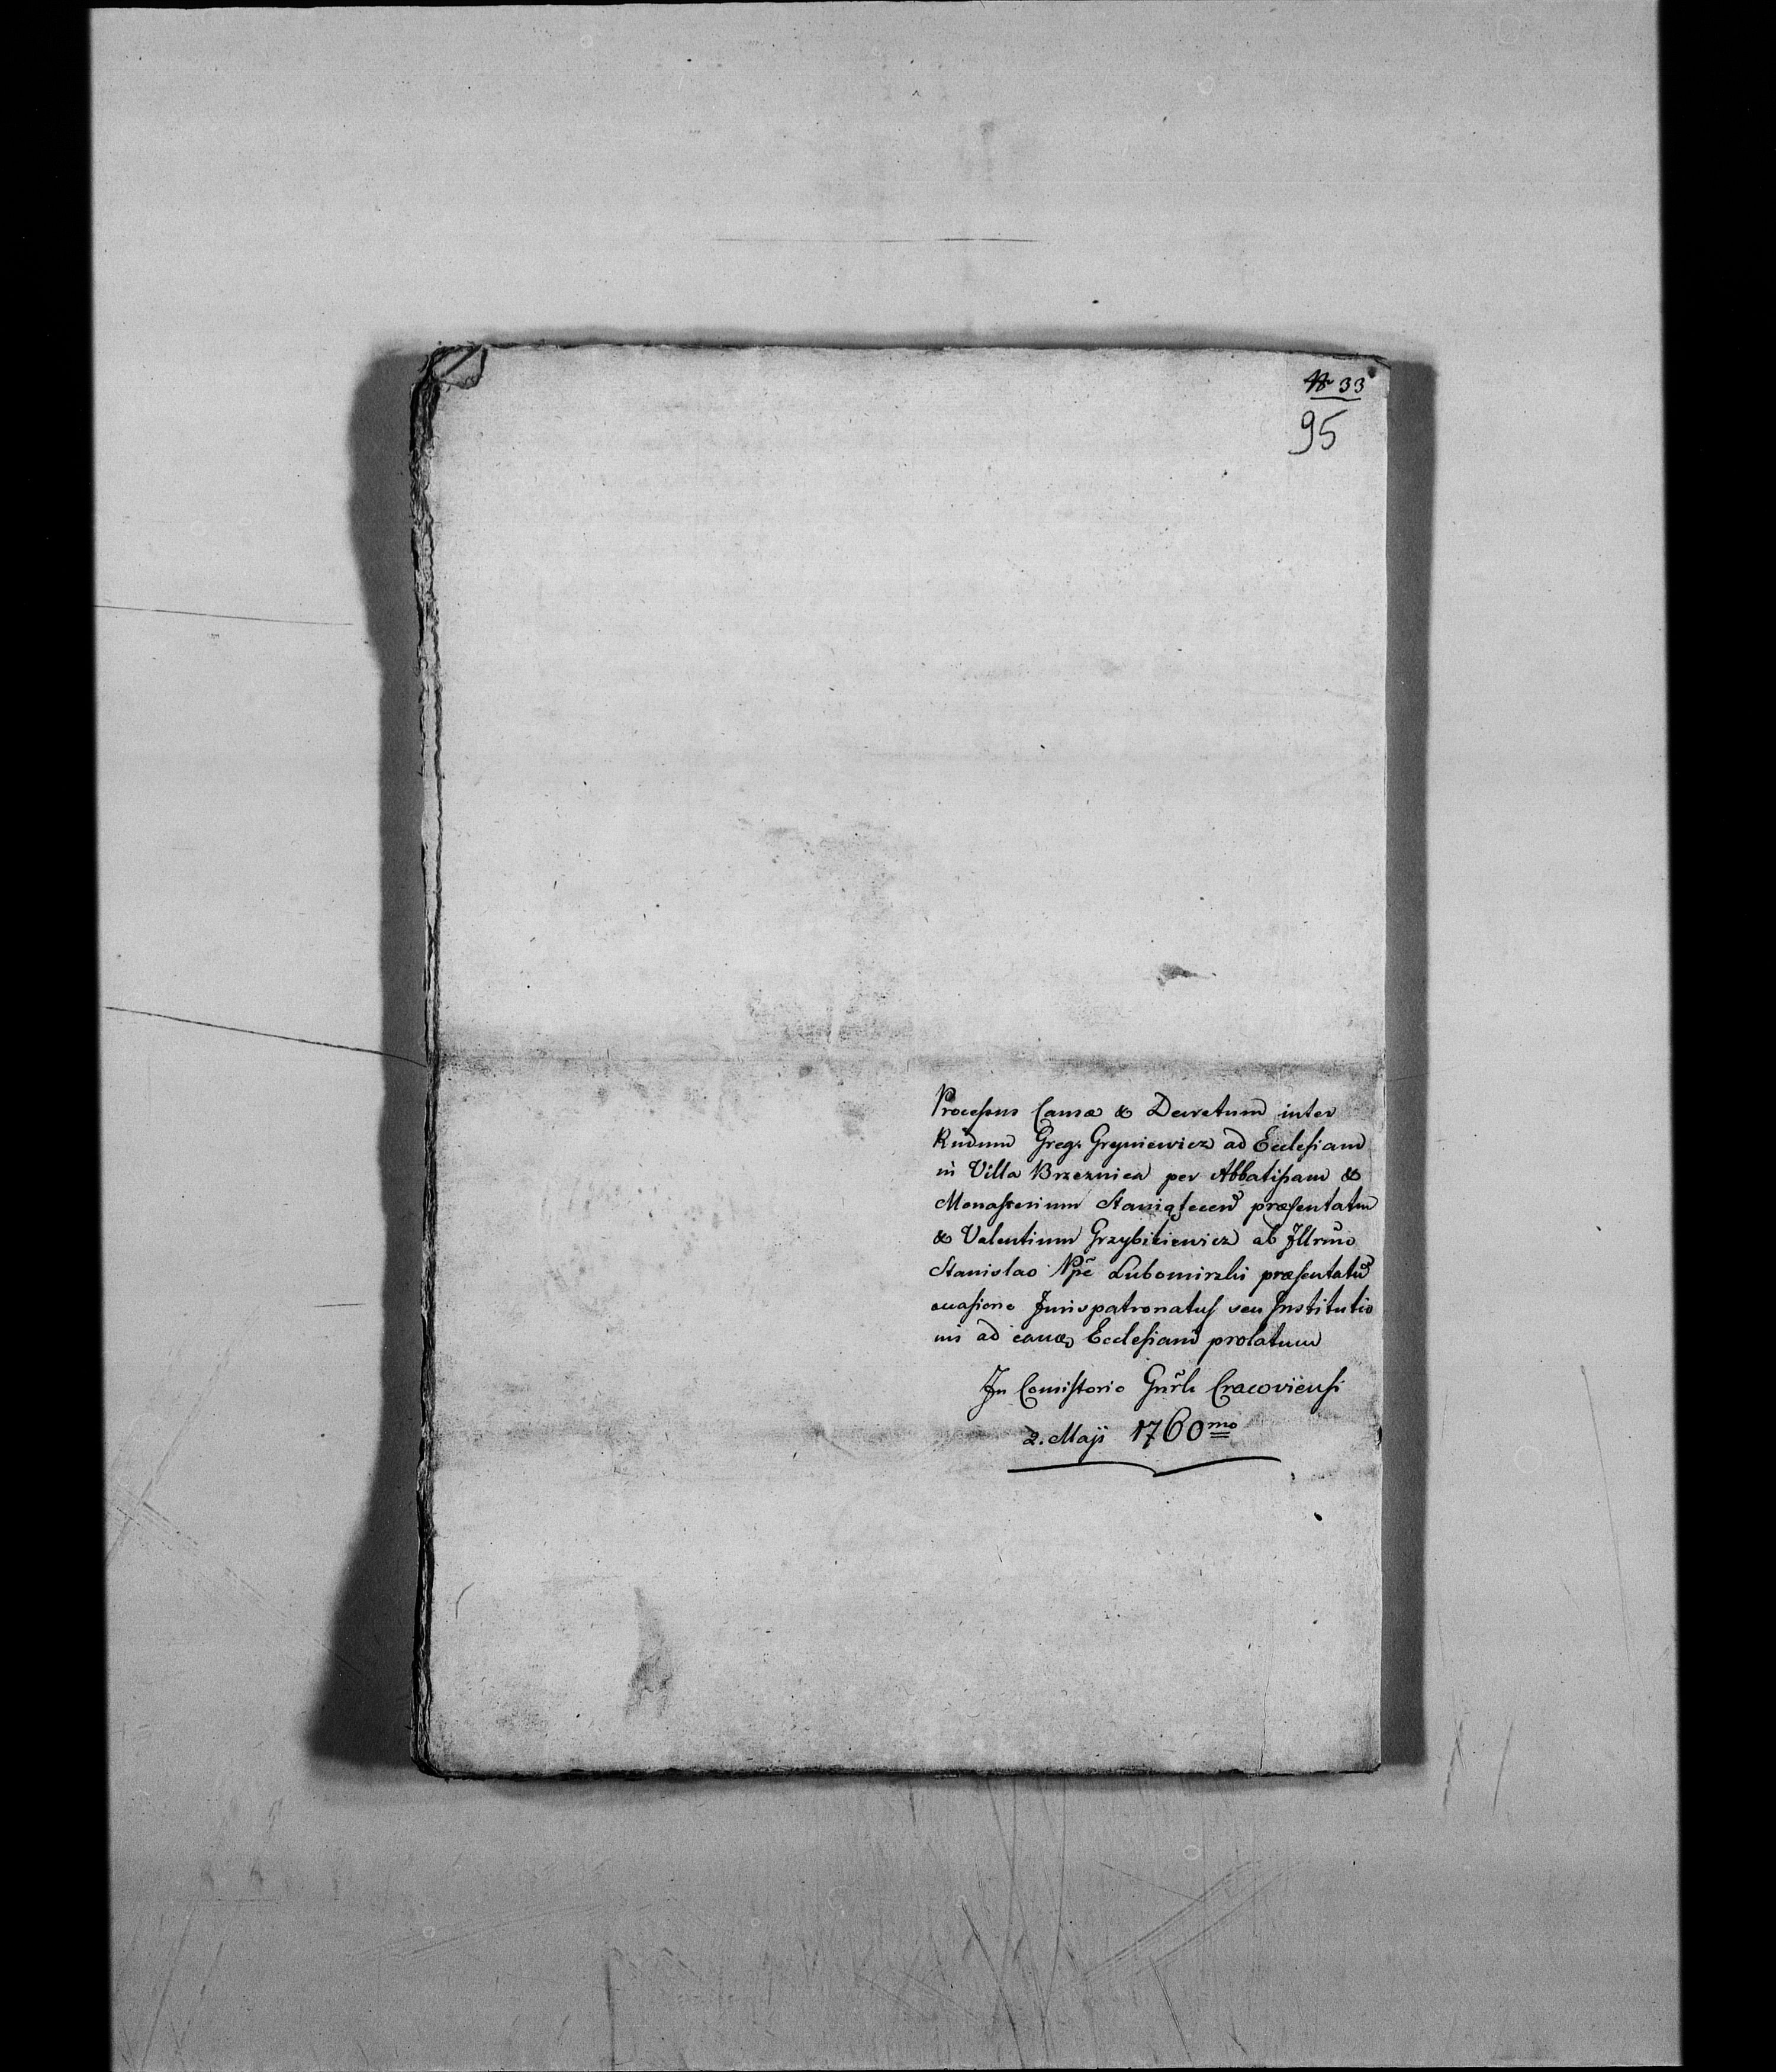 № 33
95
Processus Causæ & Decretum inter
Rñdum Greg. Greyniewicz ad Ecclesiam
in Villa Brzeznica per Abbatissam &
Monasterium Staniątecen præsentatum
& Valentinum Grzybikiewicz ab Illrmo
Stanislao Npẽ Lubomirski præsentatũ
occasione Jurispatronatus seu Institutio
nis ad eam Ecclesiam prolatum
In Consistorio Gnrli Cracoviensi
2. Maji 1760mo